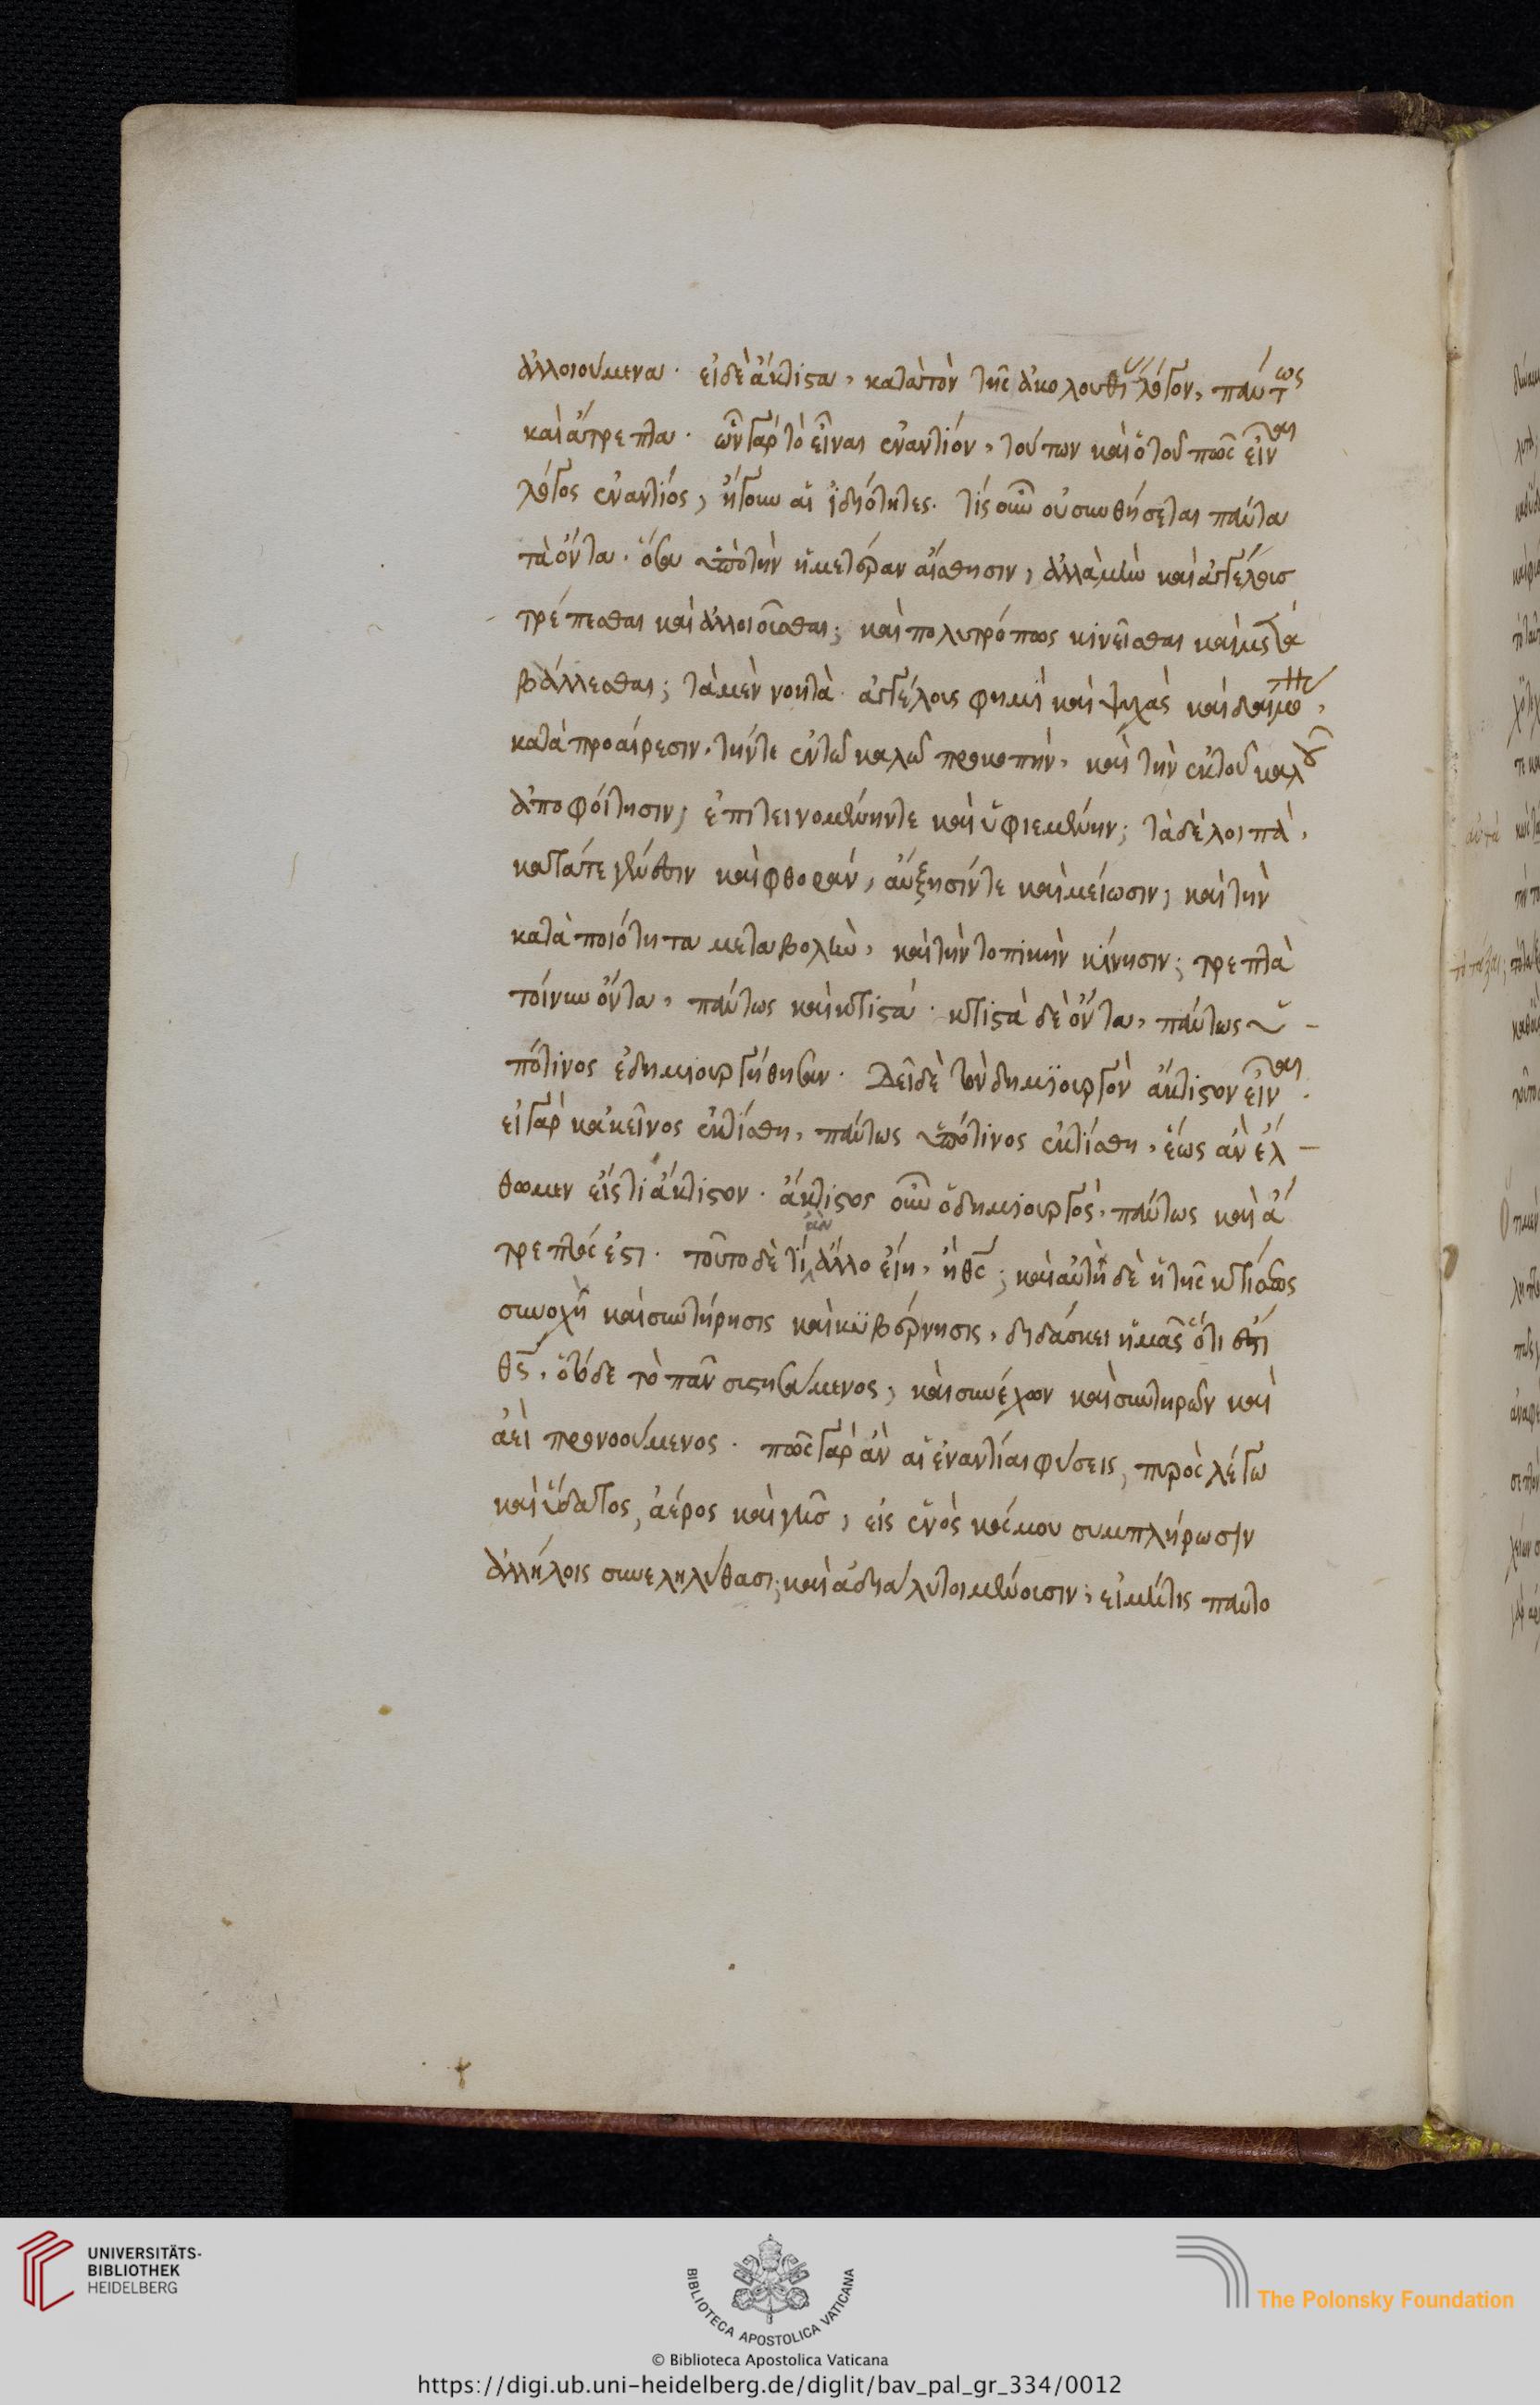 ἀλλοιούμενα· εἰ δὲ ἄκτιστα, κατὰ τὸν τῆς ἀκολουθίας λόγον, πάντως
καὶ ἄτρεπτα· ὧν γὰρ τὸ εἶναι ἐναντίον, τούτων καὶ ὁ τοῦ πῶς εἶναι
λόγος ἐναντίος, ἤγουν αἱ ἰδιότητες. τίς οὖν οὐ συνθήσεται πάντα
τὰ ὄντα. ὅσα ὑπὸ τὴν ἡμετέραν αἴσθησιν, ἀλλὰ μὴν καὶ ἀγγέλους
τρέπεσθαι καὶ ἀλλοιοῦσθαι; καὶ πολυτρόπως κινεῖσθαι καὶ μετα
βάλλεσθαι; τὰ μὲν νοητὰ· ἀγγέλους φημὶ καὶ ψυχὰς καὶ δαίμονας,
κατὰ προαίρεσιν, τήν τε ἐν τῷ καλῷ προκοπὴν, καὶ τὴν ἐκ τοῦ καλοῦ
ἀποφοίτησιν, ἐπιτεινομένην τε καὶ ὑφιεμένην; τὰ δὲ λοιπὰ,
κατά τε γένεσιν καὶ φθορὰν, αὔξησίν τε καὶ μείωσιν, καὶ τὴν
κατὰ ποιότητα μεταβολὴν, καὶ τὴν τοπικὴν κίνησιν; τρεπτὰ
τοίνυν ὄντα, πάντως καὶ κτιστά· κτιστὰ δὲ ὄντα, πάντως ὑ-
πό τινος ἐδημιουργήθησαν. Δεῖ δὲ τὸν δημιουργὸν ἄκτιστον εἶναι.
εἰ γὰρ κἀκεῖνος ἐκτίσθη, πάντως ὑπό τινος ἐκτίσθη, ἕως ἂν ἔλ-
θωμεν εἴς τι ἄκτιστον. ἄκτιστος οὖν ὁ δημιουργὸς, πάντως καὶ ἄ
τρεπτός ἐστι. τοῦτο δὲ τί ἂν ἄλλο εἴη, ἢ θς; καὶ αὐτὴ δὲ ἡ τῆς κτίσεως
συνοχὴ καὶ συντήρησις καὶ κυβέρνησις, διδάσκει ἡμᾶς ὅτι ἐστὶ
θς, ὁ τόδε τὸ πᾶν συστησάμενος, καὶ συνέχων καὶ συντηρῶν καὶ
ἀεὶ προνοούμενος. πῶς γὰρ ἂν αἱ ἐναντίαι φύσεις, πυρὸς λέγω
καὶ ὕδατος, ἀέρος καὶ γῆς, εἰς ἑνὸς κόσμου συμπλήρωσιν
ἀλλήλοις συνεληλύθασι; καὶ ἀδιάλυτοι μένουσιν, εἰ μή τις παντο
UNIVERSITÄTS-
BIBLIOTHEK
HEIDELBERG
BIBLIOTECA APOSTOLICA VATICANA
The Polonsky Foundation
© Biblioteca Apostolica Vaticana
https://digi.ub.uni-heidelberg.de/diglit/bav_pal_gr_334/0012